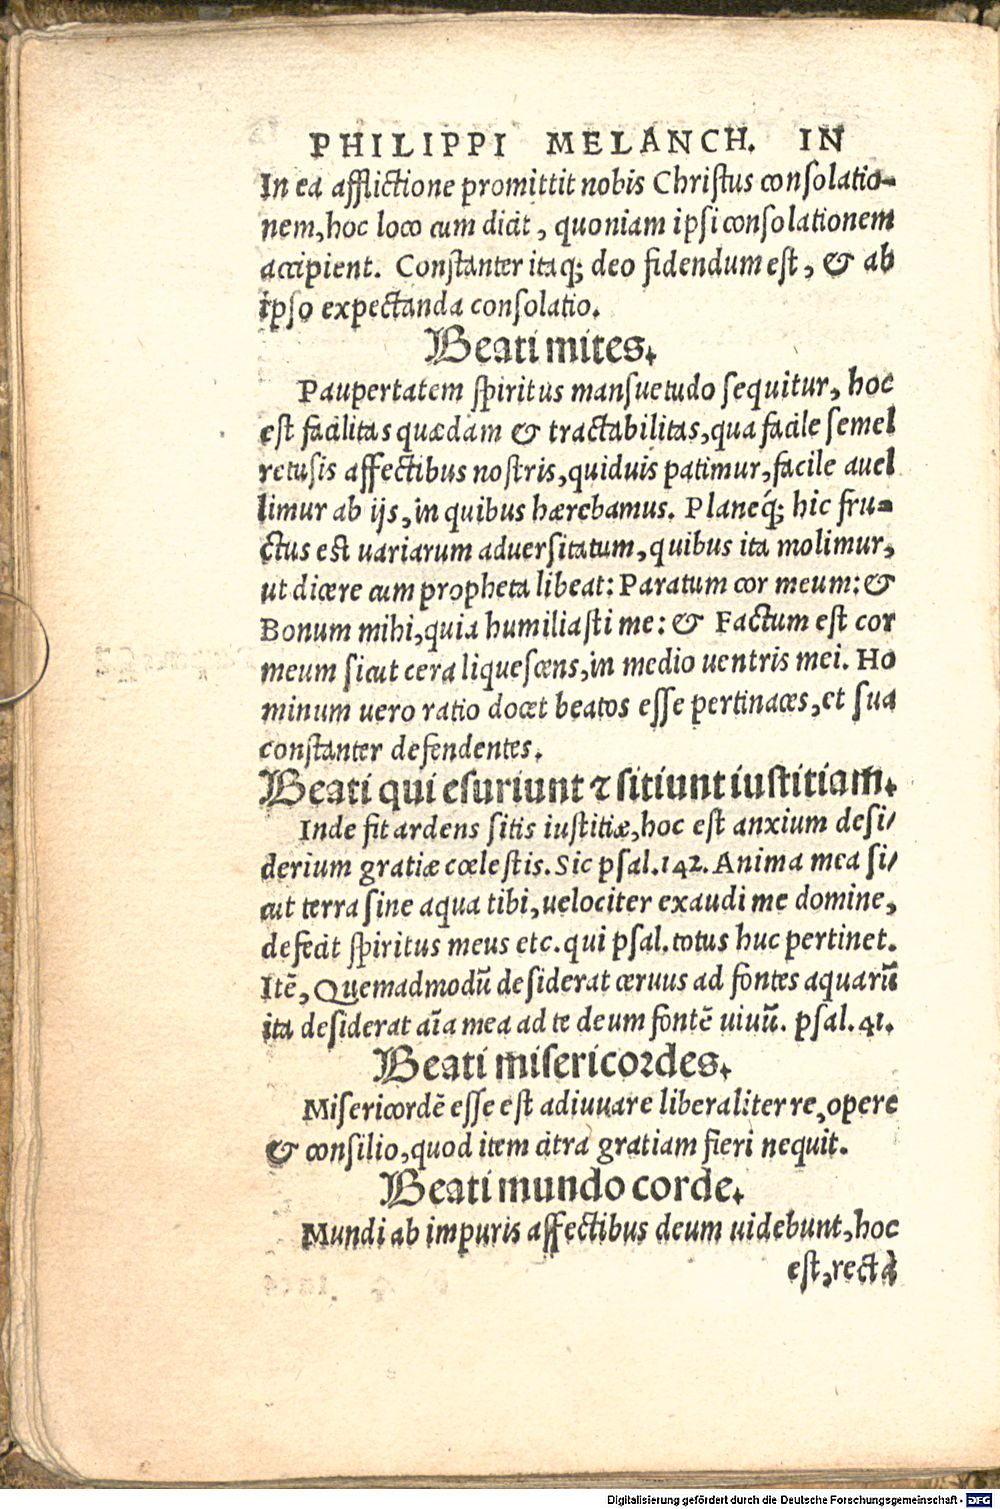 PHILIPPI MELANCH. IN
In ea afflictione promittit nobis Christus consolatio-
nem, hoc loco cum dicit, quoniam ipsi consolationem
accipient. Constanter itaq; deo fidendum est, & ab
ipso expectanda consolatio.
Beati mites.
Paupertatem spiritus mansuetudo sequitur, hoc
est facilitas quædam & tractabilitas, qua facile semel
retusis affectibus nostris, quiduis patimur, facile auel
limur ab ijs, in quibus hærebamus. Planeq́; hic fru-
ctus est uariarum aduersitatum, quibus ita molimur,
ut dicere cum propheta libeat: Paratum cor meum: &
Bonum mihi, quia humiliasti me: & Factum est cor
meum sicut cera liquescens, in medio uentris mei. Ho
minum uero ratio docet beatos esse pertinaces, et sua
constanter defendentes.
Beati qui esuriunt ⁊ sitiunt iustitiam.
Inde fit ardens sitis iustitiæ, hoc est anxium desi/
derium gratiæ cœlestis. Sic psal. 142. Anima mea si/
cut terra sine aqua tibi, uelociter exaudi me domine,
defecit spiritus meus etc. qui psal. totus huc pertinet.
Itē, Quemadmodū desiderat ceruus ad fontes aquarū
ita desiderat aīa mea ad te deum fontē uiuū. psal. 41.
Beati misericordes.
Misericordē esse est adiuuare liberaliter re, opere
& consilio, quod item citra gratiam fieri nequit.
Beati mundo corde.
Mundi ab impuris affectibus deum uidebunt, hoc
est, recta
Digitalisierung gefördert durch die Deutsche Forschungsgemeinschaft - DFG